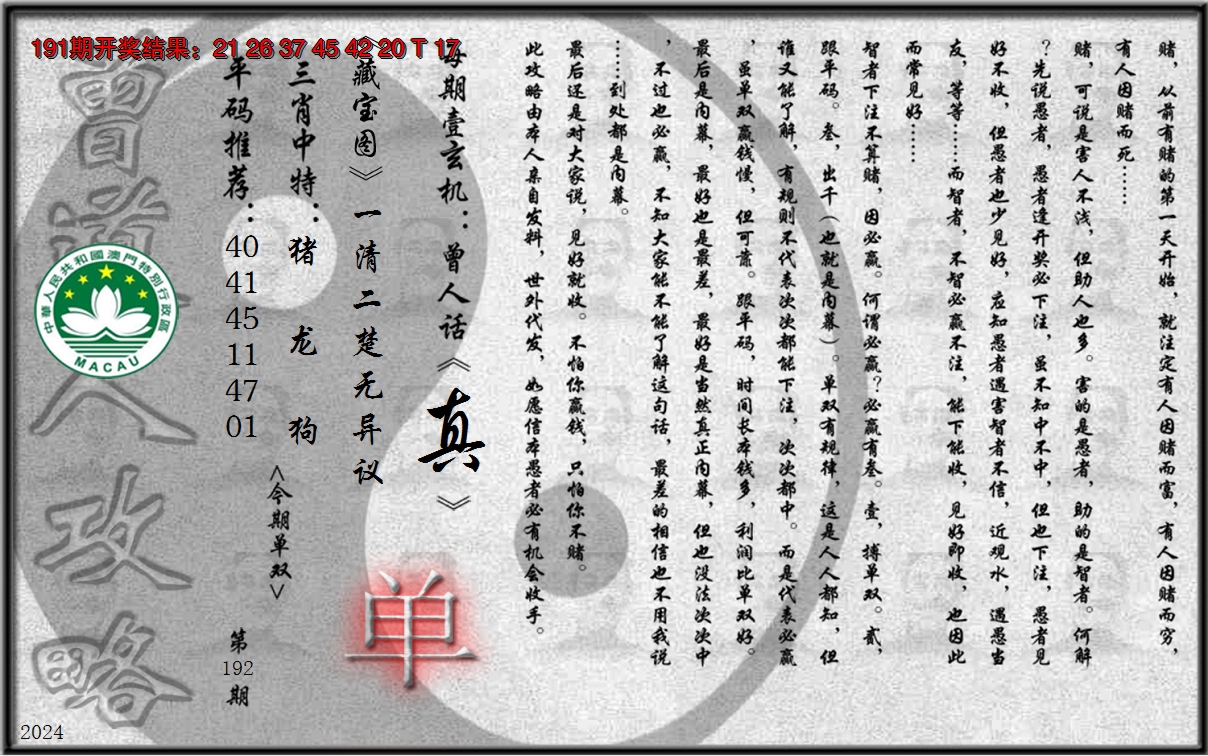 191期开奖结果：21 26 37 45 42 20 T 17
赌，从前有赌的第一天开始，就注定有人因赌而富，有人因赌而穷，
有人因赌而死……
赌，可说是害人不浅，但助人也多。害的是愚者，助的是智者。何解
？先说愚者，愚者逢开奖必下注，虽不知中不中，但也下注，愚者见
好不收，但愚者也少见好，应知愚者遇害智者不信，近观水，遇愚当
友，等等……而智者，不智必赢不注，能下能收，见好即收，也因此
而常见好……
智者下注不算赌，因必赢。何谓必赢？必赢有叁。壹，搏单双。贰，
跟平码。叁，出千（也就是内幕）。单双有规律，这是人人都知，但
谁又能了解，有规则不代表次次都能下注，次次都中。而是代表必赢
，虽单双赢钱慢，但可靠。跟平码，时间长本钱多，利润比单双好。
最后是内幕，最好也是最差，最好是当然真正内幕，但也没法次次中
，不过也必赢，不知大家能不能了解这句话，最差的相信也不用我说
……到处都是内幕。
最后还是对大家说，见好就收。不怕你赢钱，只怕你不赌。
此攻略由本人亲自发料，世外代发，如愿信本愚者必有机会收手。
每期壹玄机：曾人话《真》
《藏宝图》一清二楚无异议
单
三肖中特：猪 龙 狗
<今期单双>
平码推荐：40 41 45 11 47 01
第192期
曾道人攻略
中華人民共和國澳門特別行政區
MACAU
2024